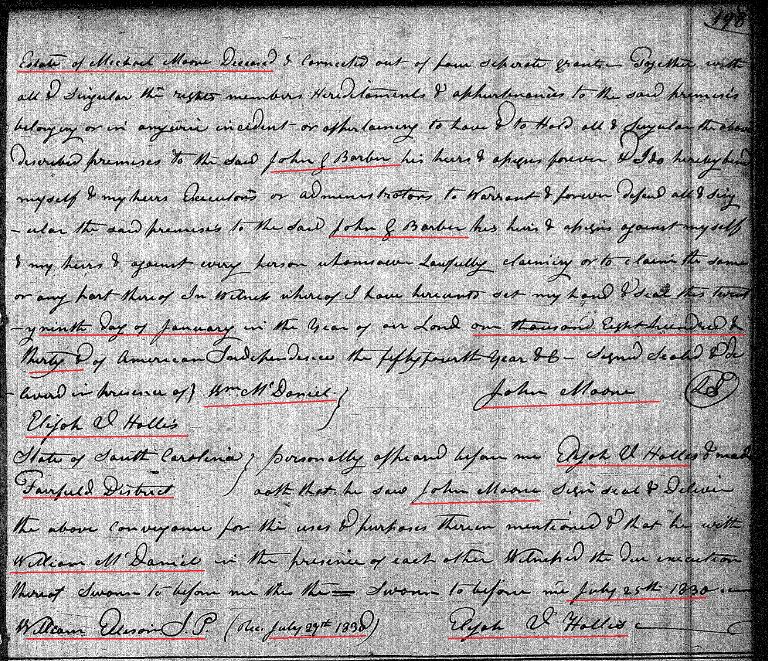 198
Estate of Michael Moore Deceased & Connected out of four seperate grants – Together with
all & Singular the rights members Hereditaments & appurtenances to the said premises
belonging or in anywise incident or appertaining to have & to Hold all & Singular the above
described premises to the said John G Barber his heirs & assigns forever & I do hereby bind
myself & my heirs Executors or administrators to Warrant & forever defend all & sing
-ular the said premises to the said John G Barber his heirs & assigns against myself
& my heirs & against every person whomsoever Lawfully claiming or to claim the same
or any part thereof In Witness whereof I have hereunto set my hand & seal this twent
-y ninth day of January in the Year of our Lord one thousand Eight hundred &
thirty & of American Independence the fiftyfourth Year &C – Signed Sealed & De
livered in presence of } Wm McDaniel } John Moore LS
Elijah Hollis
State of South Carolina } personally appeared before me Elijah Hollis & made
Fairfield District } oath that he saw John Moore Sign seal & Deliver
the above conveyance for the uses & purposes therein mentioned & that he with
William McDaniel in the presence of each other Witnessed the due execution
thereof Sworn to before me this the = Sworn to before me July 25th 1830
William J.P. (Rec. July 29th 1830) Elijah Hollis